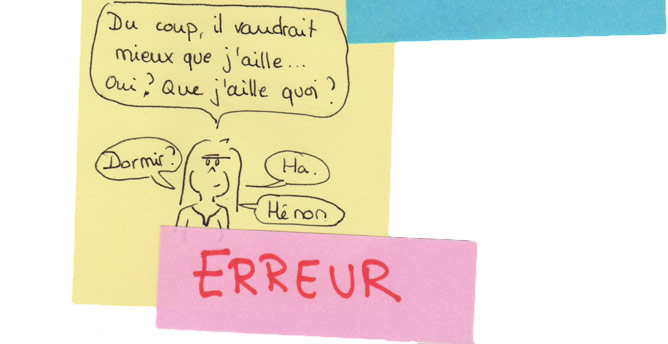 Du coup, il vaudrait
mieux que j'aille...
Oui? Que j'aille quoi?
Dormir?
Ha.
Hé non
ERREUR